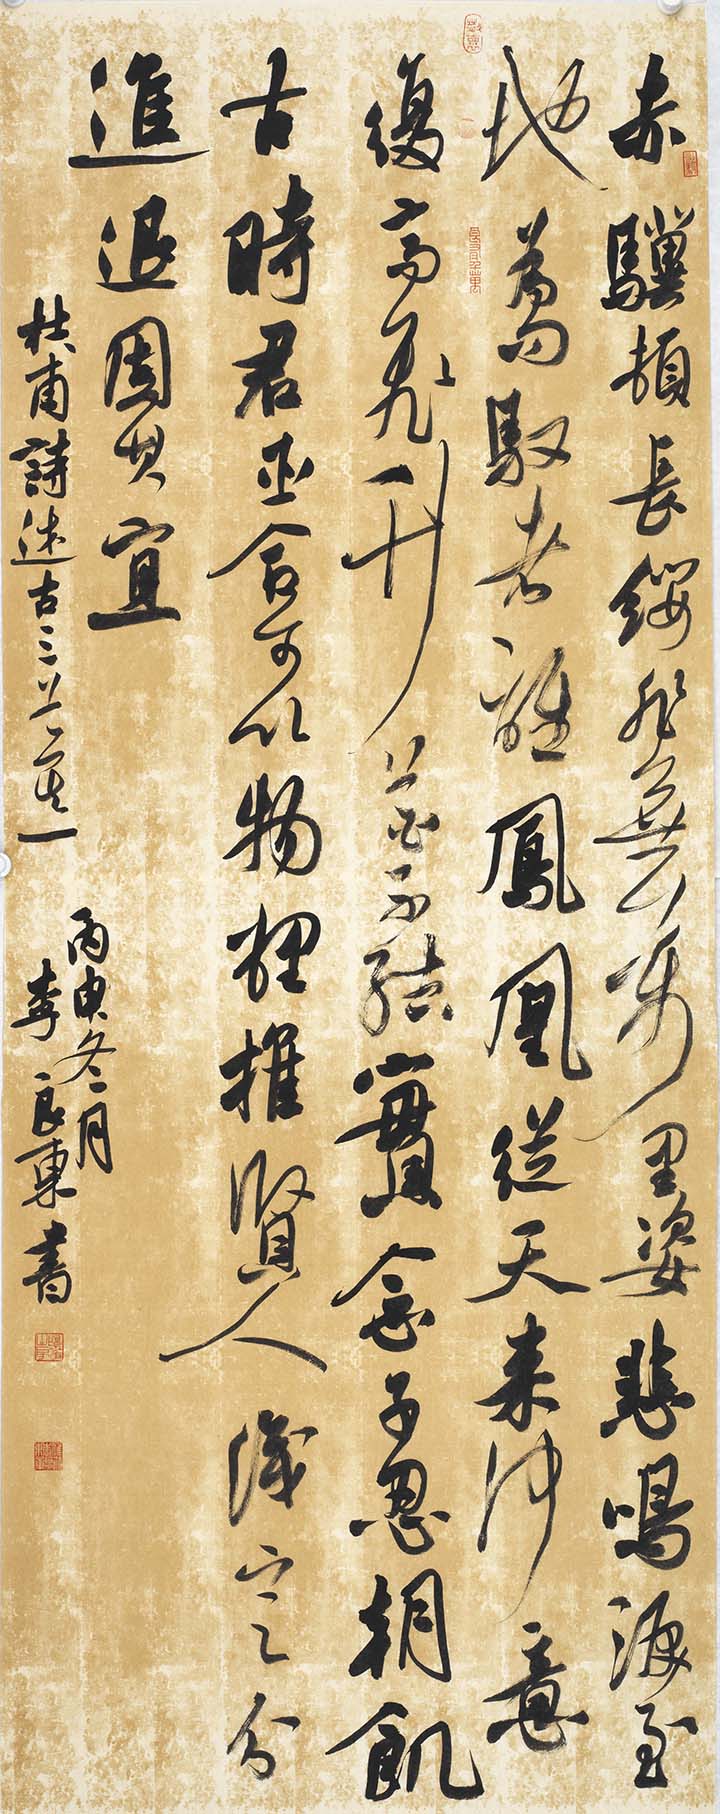 赤驥頓長纓非無萬里姿悲鳴淚至
地為問馭者誰鳳凰從天來何意
復高飛竹花不結實念子忍朝飢
古時君臣合可以物理推賢人識定分
進退固其宜
杜甫詩述古三首其一
丙申冬月
李良東書